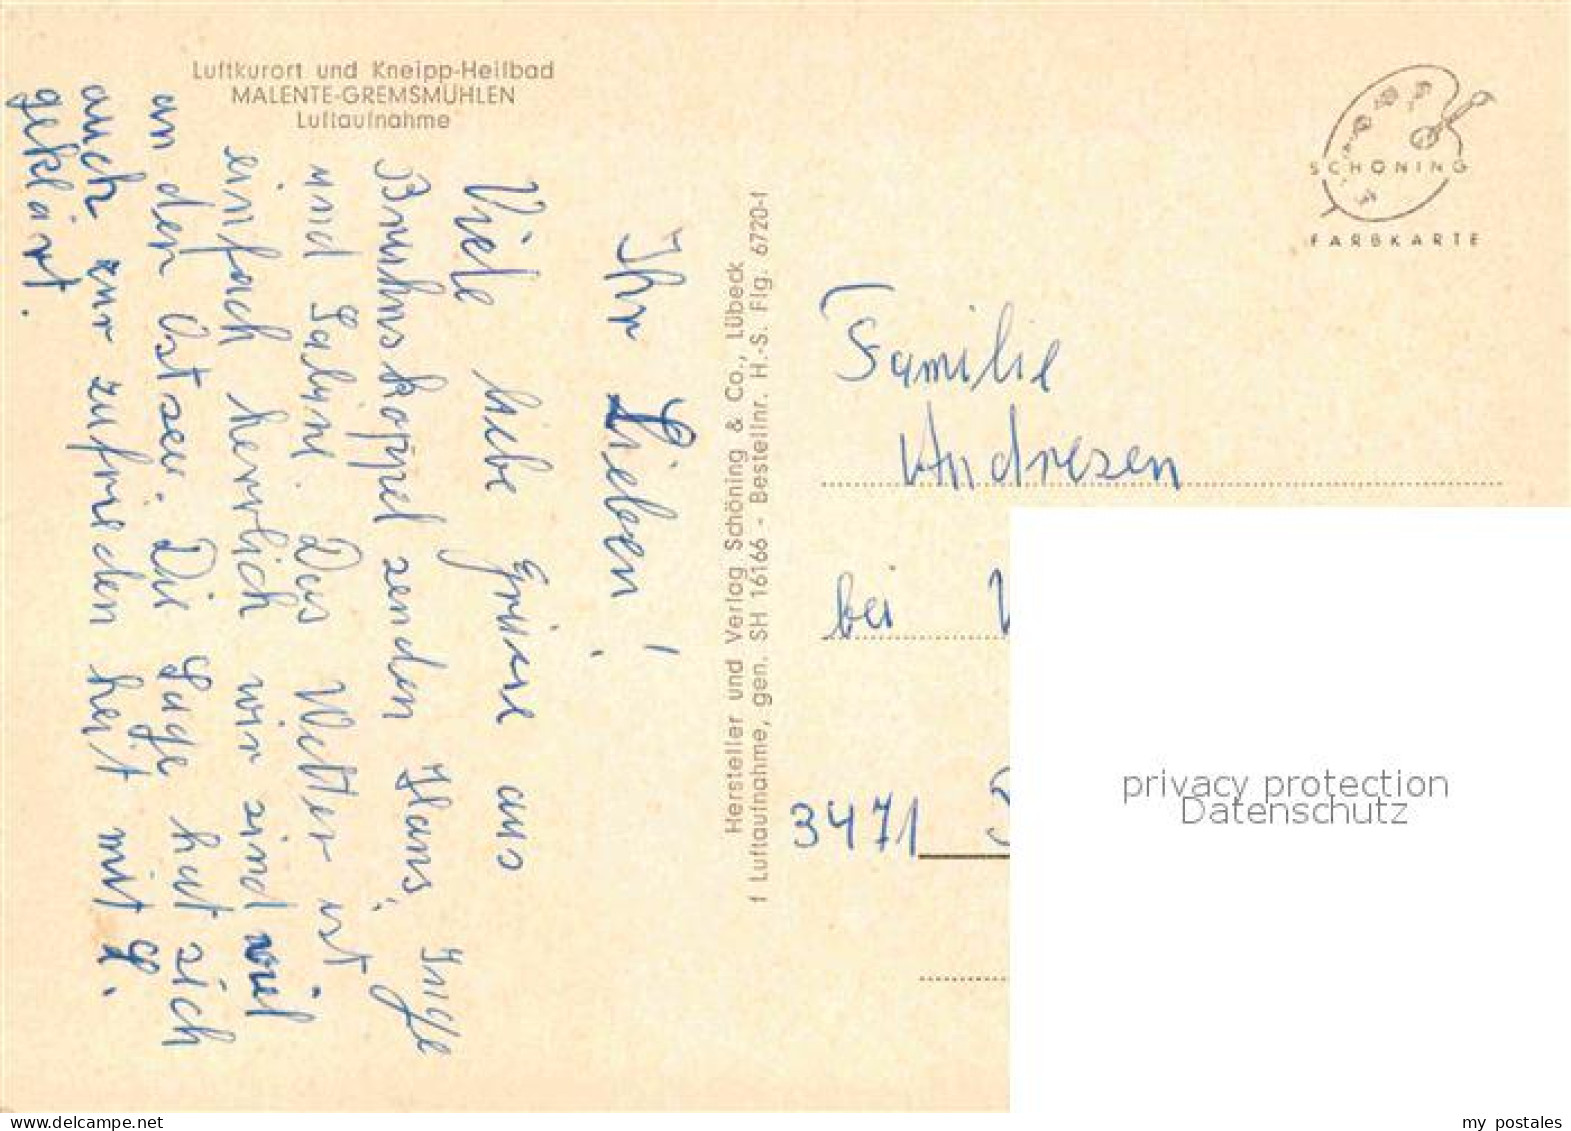 Luftkurort und Kneipp-Heilbad
MALENTE-GREMSMÜHLEN
Luftaufnahme
Ihr Lieben!
Viele liebe Grüsse aus
Bruhnskoppel senden Hans, Inge
und Sabine. Das Wetter ist
einfach herrlich wir sind viel
an der Ostsee. Die Lage hat sich
auch zur zufrieden heit mit L.
geklärt.
Hersteller und Verlag Schöning & Co., Lübeck
f Luftaufnahme, gen. SH 16166 - Bestellnr. H.-S. Flg. 6720-1
SCHÖNING
FARBKARTE
Familie
Andresen
bei
3471
privacy protection
Datenschutz
delcampe.net
my postales